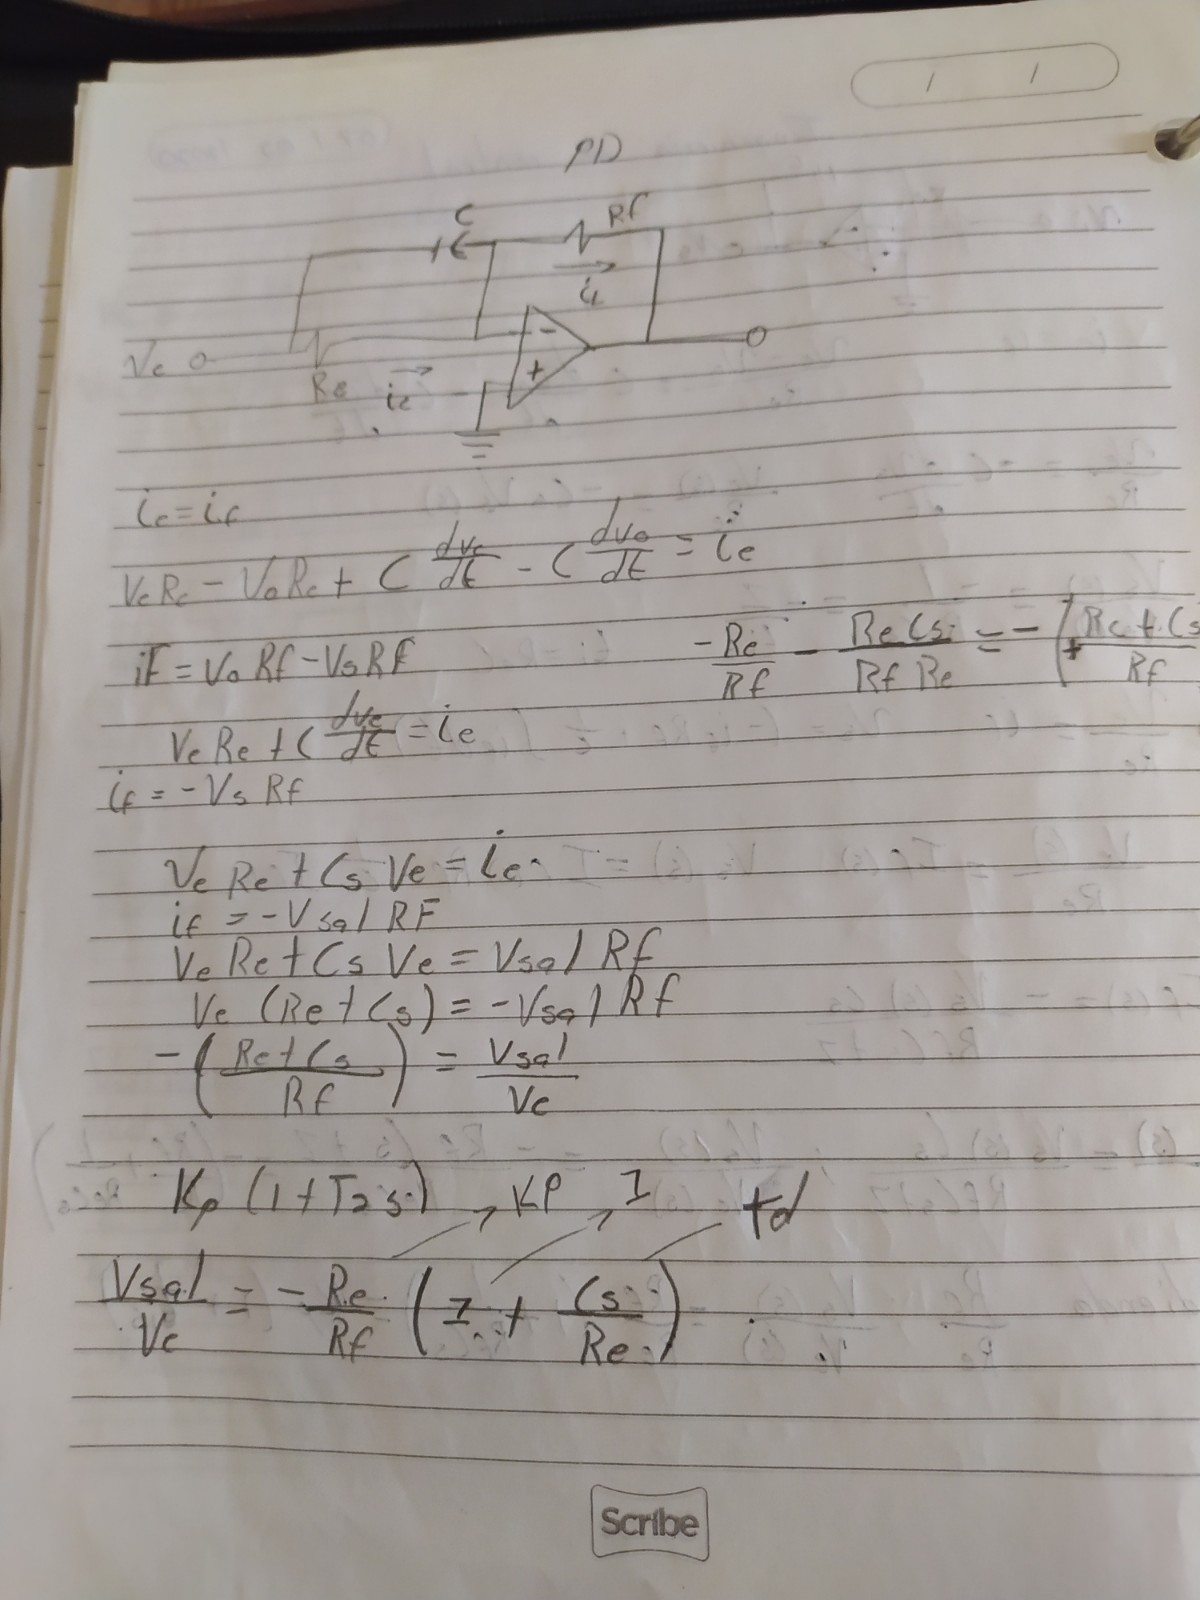 PD
C
Rf
if
Ve
-
+
Re
ie
ie = if
VeRe - VoRe + C dve/dt - C dvo/dt = ie
iF = Vo Rf - VsRF
-Re/Rf - ReCs/RfRe = -(+ Re+Cs/Rf
VeRe + C dve/dt = ie
if = -Vs Rf
Ve Re + Cs Ve = ie
if = -Vsal RF
Ve Re + Cs Ve = Vsal Rf
Ve (Re + Cs) = -Vsal Rf
-(Re+Cs/Rf) = Vsal/Ve
Kp (1+T2s) KP I td
Vsal/Ve = -Re/Rf (I + Cs/Re)
Scribe